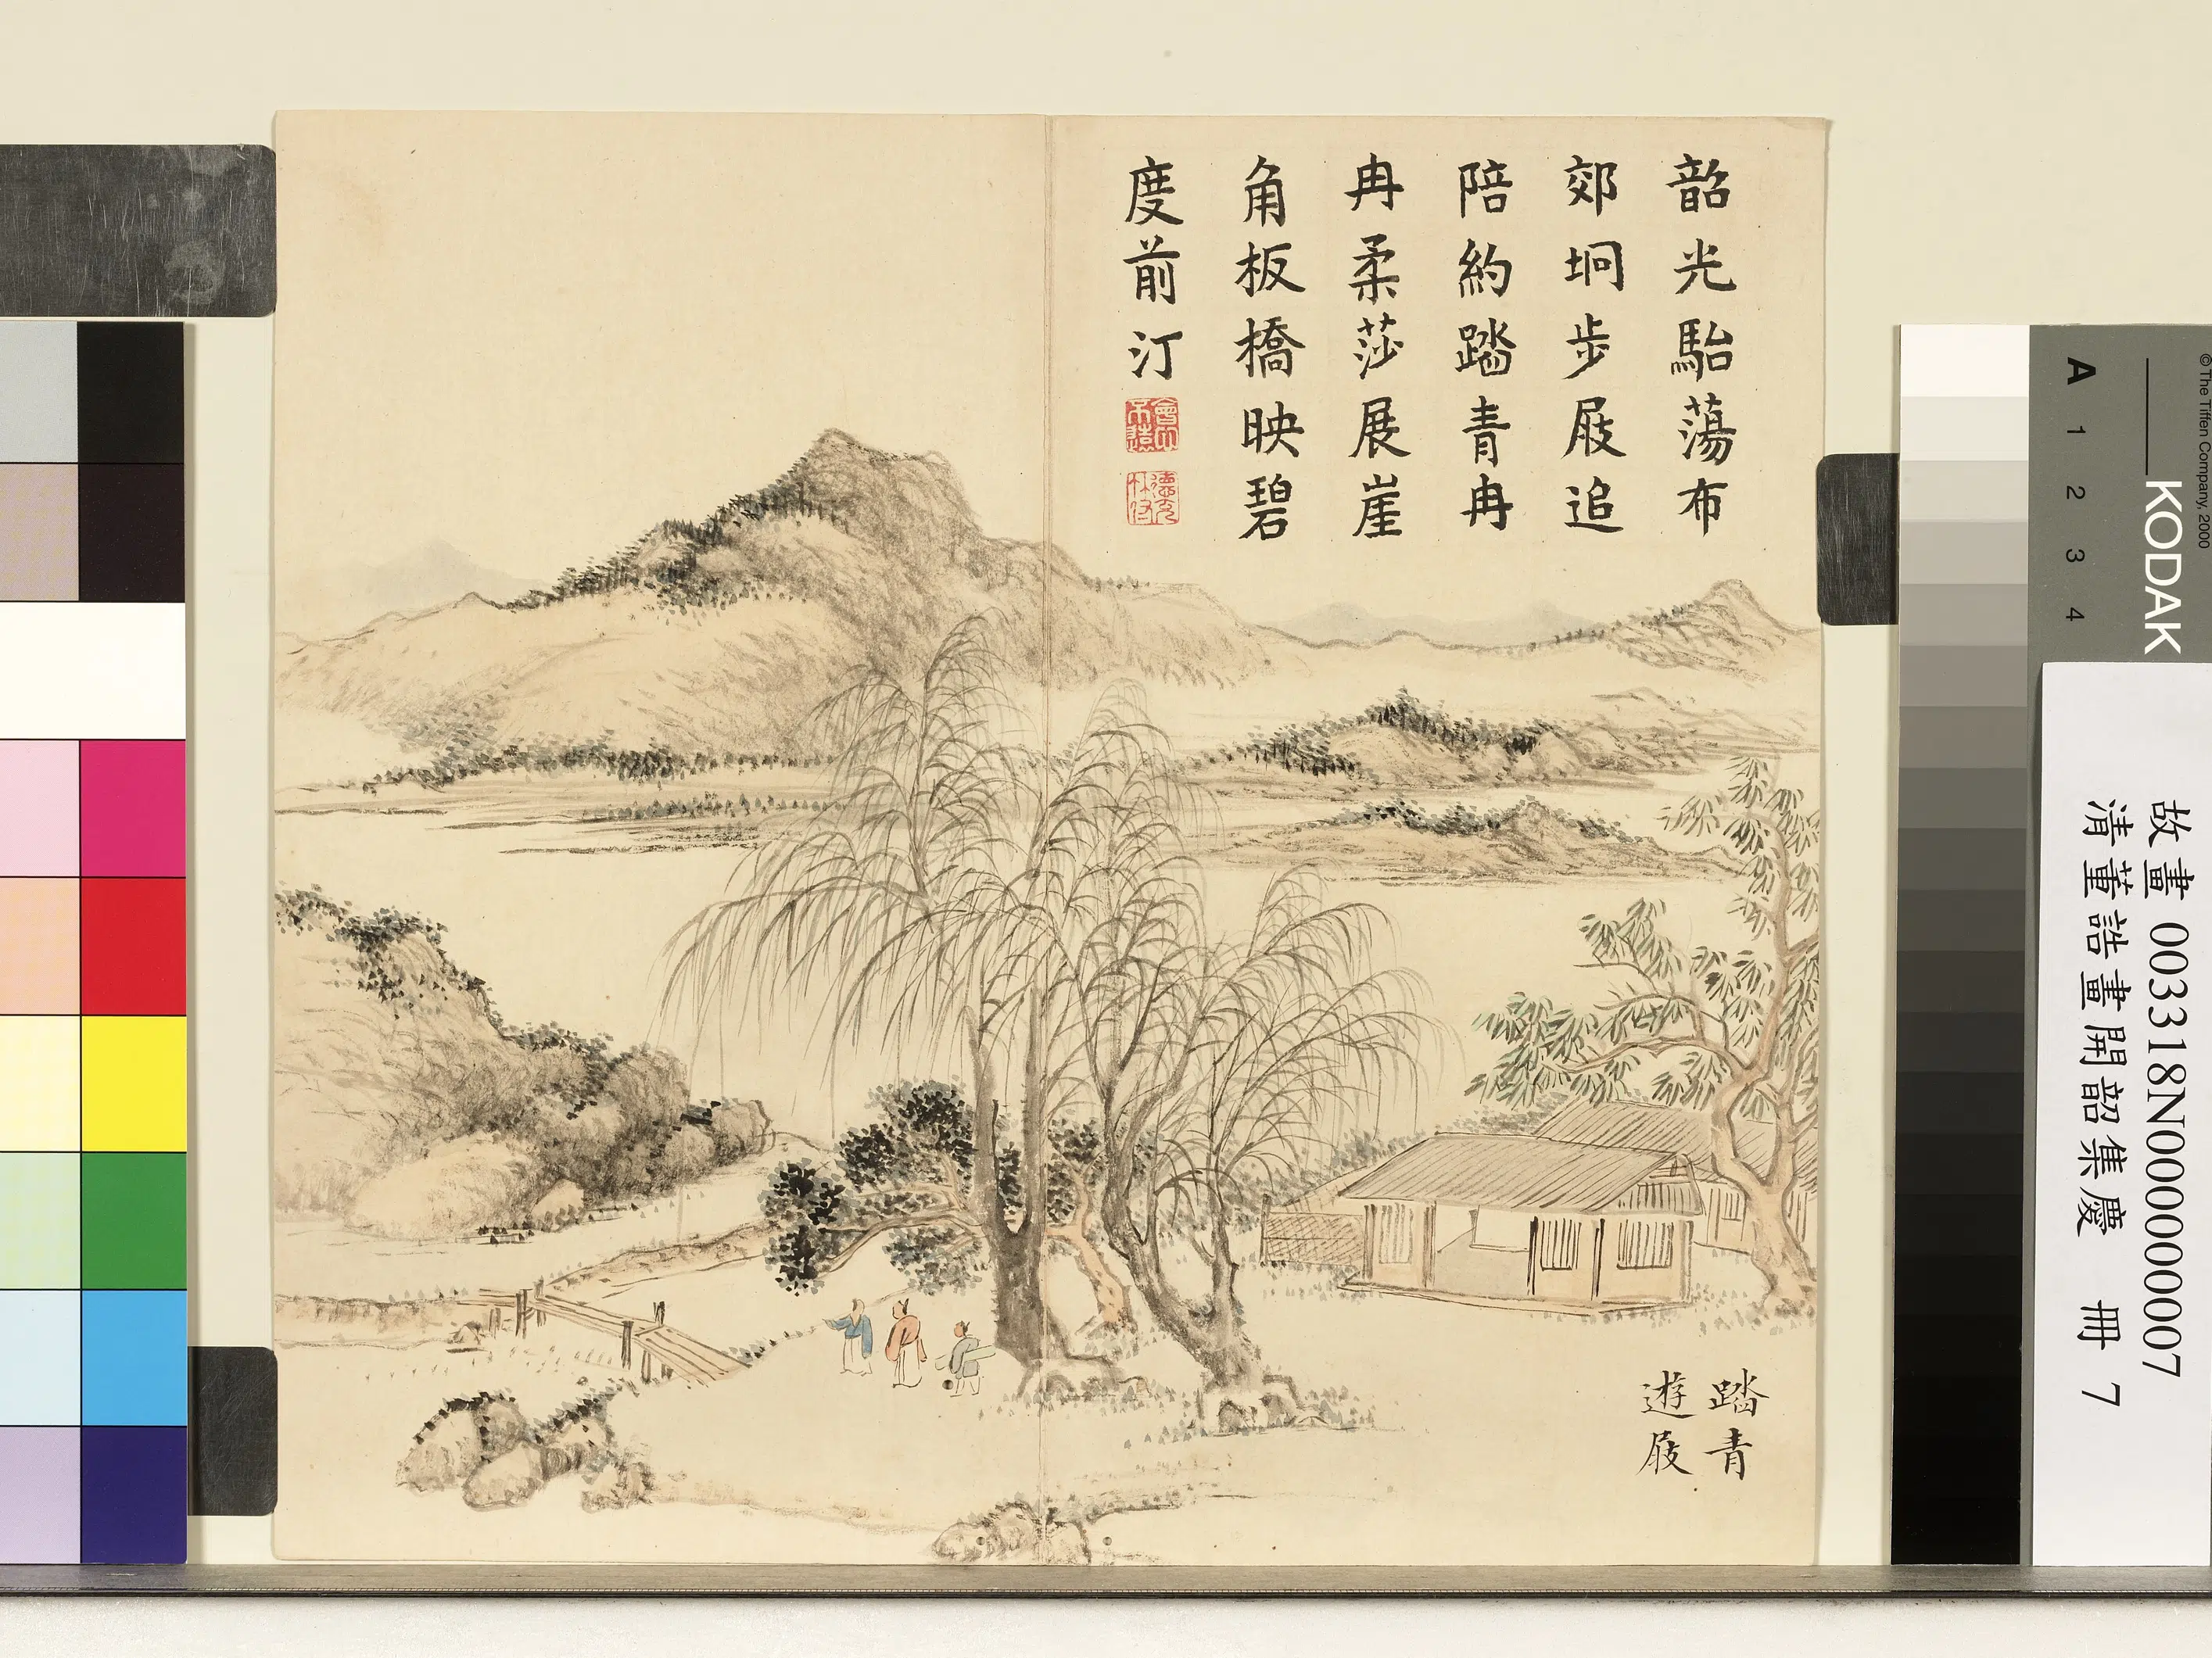 韶光駘蕩布
郊坰步屐追
陪約踏青冉
冉柔莎展崖
角板橋映碧
度前汀
會心不遠
德充符
踏青
遊屐
故畫 003318N000000007
清董誥畫開韶集慶 冊 7
© The Tiffen Company, 2000
KODAK
A 1 2 3 4